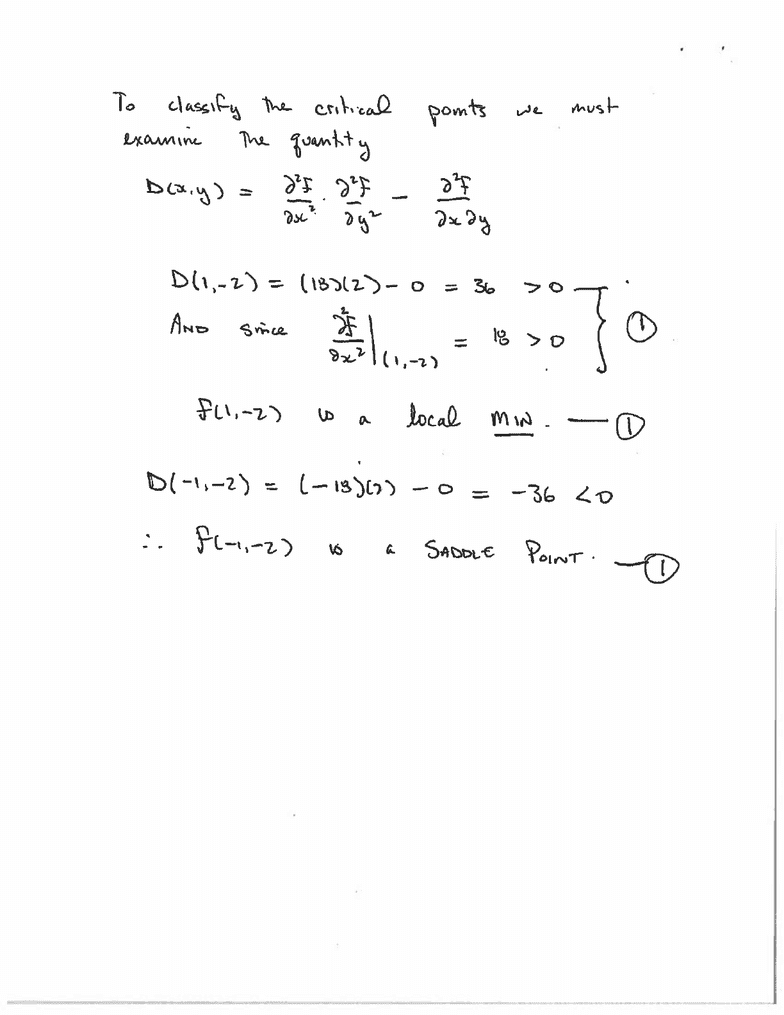 To classify the critical points we must
examine the quantity
D(x,y) = ∂²f/∂x² · ∂²f/∂y² − ∂²f/∂x∂y
D(1,-2) = (18)(2) - 0 = 36 > 0
AND since ∂²f/∂x² |(1,-2) = 18 > 0 } ①
f(1,-2) is a local MIN. — ①
D(-1,-2) = (-18)(2) - 0 = -36 < 0
∴ f(-1,-2) is a SADDLE POINT. — ①